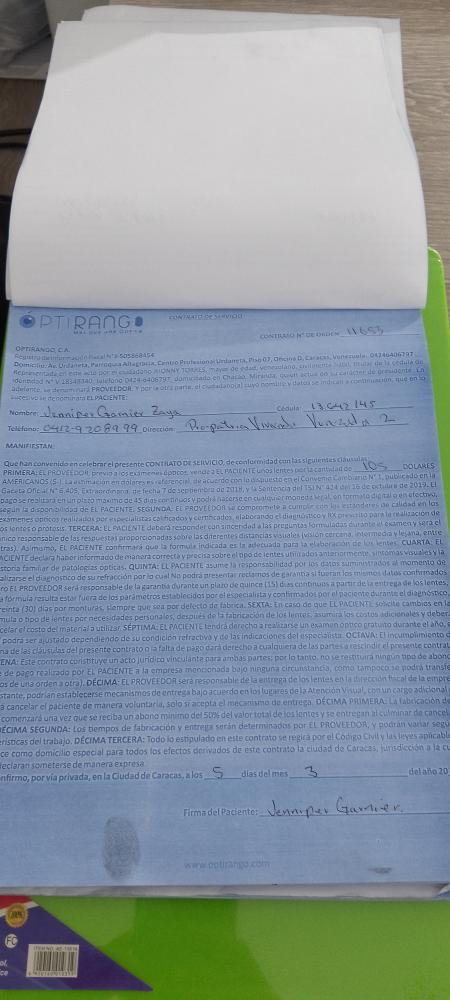 OPTIRANGO
MÁS QUE UNA ÓPTICA
CONTRATO DE SERVICIO
CONTRATO N° DE ORDEN 11653
OPTIRANGO, C.A.
Registro de Información Fiscal N° J-505868454
Domicilio: Av. Urdaneta, Parroquia Altagracia, Centro Profesional Urdaneta, Piso 07, Oficina D, Caracas, Venezuela. 04246406797
Representada en este acto por el ciudadano JHONNY TORRES, mayor de edad, venezolano, civilmente hábil, titular de la cédula de
identidad N° V 18348340, teléfono 0424-6406797, domiciliado en Chacao, Miranda, quien actúa en su carácter de presidente. En
adelante, se denominará PROVEEDOR. Y por la otra parte, el ciudadano(a) cuyo nombre y datos se indican a continuación, que en lo
sucesivo se denominará EL PACIENTE:
Nombre: Jenniper Garnier Zaya Cédula: 13.642.145
Teléfono: 0412-9208999 Dirección: Propatria Vivienda Venezuela 2
MANIFIESTAN:
Que han convenido en celebrar el presente CONTRATO DE SERVICIO, de conformidad con las siguientes cláusulas:
PRIMERA: EL PROVEEDOR, previo a los exámenes ópticos, vende a EL PACIENTE unos lentes por la cantidad de 105 DOLARES
AMERICANOS ($-). La estimación en dólares es referencial, de acuerdo con lo dispuesto en el Convenio Cambiario N° 1, publicado en la
Gaceta Oficial N° 6.405, Extraordinaria, de fecha 7 de septiembre de 2018, y la Sentencia del TSJ N° 424 del 16 de octubre de 2019. El
pago se realizará en un plazo máximo de 45 días continuos y podrá hacerse en cualquier moneda legal, en formato digital o en efectivo,
según la disponibilidad de EL PACIENTE. SEGUNDA: EL PROVEEDOR se compromete a cumplir con los estándares de calidad en los
exámenes ópticos realizados por especialistas calificados y certificados, elaborando el diagnóstico y RX prescrito para la realización de
los lentes o prótesis. TERCERA: EL PACIENTE deberá responder con sinceridad a las preguntas formuladas durante el examen y será el
nico responsable de las respuestas proporcionadas sobre las diferentes distancias visuales (visión cercana, intermedia y lejana, entre
tras). Asimismo, EL PACIENTE confirmará que la fórmula indicada es la adecuada para la elaboración de los lentes. CUARTA: EL
ACIENTE declara haber informado de manera correcta y precisa sobre el tipo de lentes utilizados anteriormente, síntomas visuales y la
storia familiar de patologías ópticas. QUINTA: EL PACIENTE asume la responsabilidad por los datos suministrados al momento de
alizarse el diagnóstico de su refracción por lo cual No podrá presentar reclamos de garantía si fueran los mismos datos confirmados.
ro EL PROVEEDOR será responsable de la garantía durante un plazo de quince (15) días continuos a partir de la entrega de los lentes,
la fórmula resulta estar fuera de los parámetros establecidos por el especialista y confirmados por el paciente durante el diagnóstico
reinta (30) días por monturas, siempre que sea por defecto de fábrica. SEXTA: En caso de que EL PACIENTE solicite cambios en la
mula o tipo de lentes por necesidades personales, después de la fabricación de los lentes, asumirá los costos adicionales y deber
celar el costo del material a utilizar. SÉPTIMA: EL PACIENTE tendrá derecho a realizarse un examen óptico gratuito durante el año,
podrá ser ajustado dependiendo de su condición refractiva y de las indicaciones del especialista. OCTAVA: El incumplimiento d
na de las cláusulas del presente contrato o la falta de pago dará derecho a cualquiera de las partes a rescindir el presente contrat
ENA: Este contrato constituye un acto jurídico vinculante para ambas partes; por lo tanto, no se restituirá ningún tipo de abono
de pago realizado por EL PACIENTE a la empresa mencionada bajo ninguna circunstancia, como tampoco se podrá transfe
os de una orden a otra). DÉCIMA: EL PROVEEDOR será responsable de la entrega de los lentes en la dirección fiscal de la empre
stante, podrían establecerse mecanismos de entrega bajo acuerdo en los lugares de la Atención Visual, con un cargo adicional
á cancelar el paciente de manera voluntaria, solo si acepta el mecanismo de entrega. DÉCIMA PRIMERA: La fabricación de
comenzará una vez que se reciba un abono mínimo del 50% del valor total de los lentes y se entregan al culminar de cancel
DÉCIMA SEGUNDA: Los tiempos de fabricación y entrega serán determinados por EL PROVEEDOR, y podrán variar segú
erísticas del trabajo. DÉCIMA TERCERA: Todo lo estipulado en este contrato se regirá por el Código Civil y las leyes aplicable
ce como domicilio especial para todos los efectos derivados de este contrato la ciudad de Caracas, jurisdicción a la cu
declaran someterse de manera expresa.
onfirmo, por vía privada, en la Ciudad de Caracas, a los 5 días del mes 3 del año 20
Firma del Paciente: Jenniper Garnier.
www.optirango.com
FC
ITEM NO.